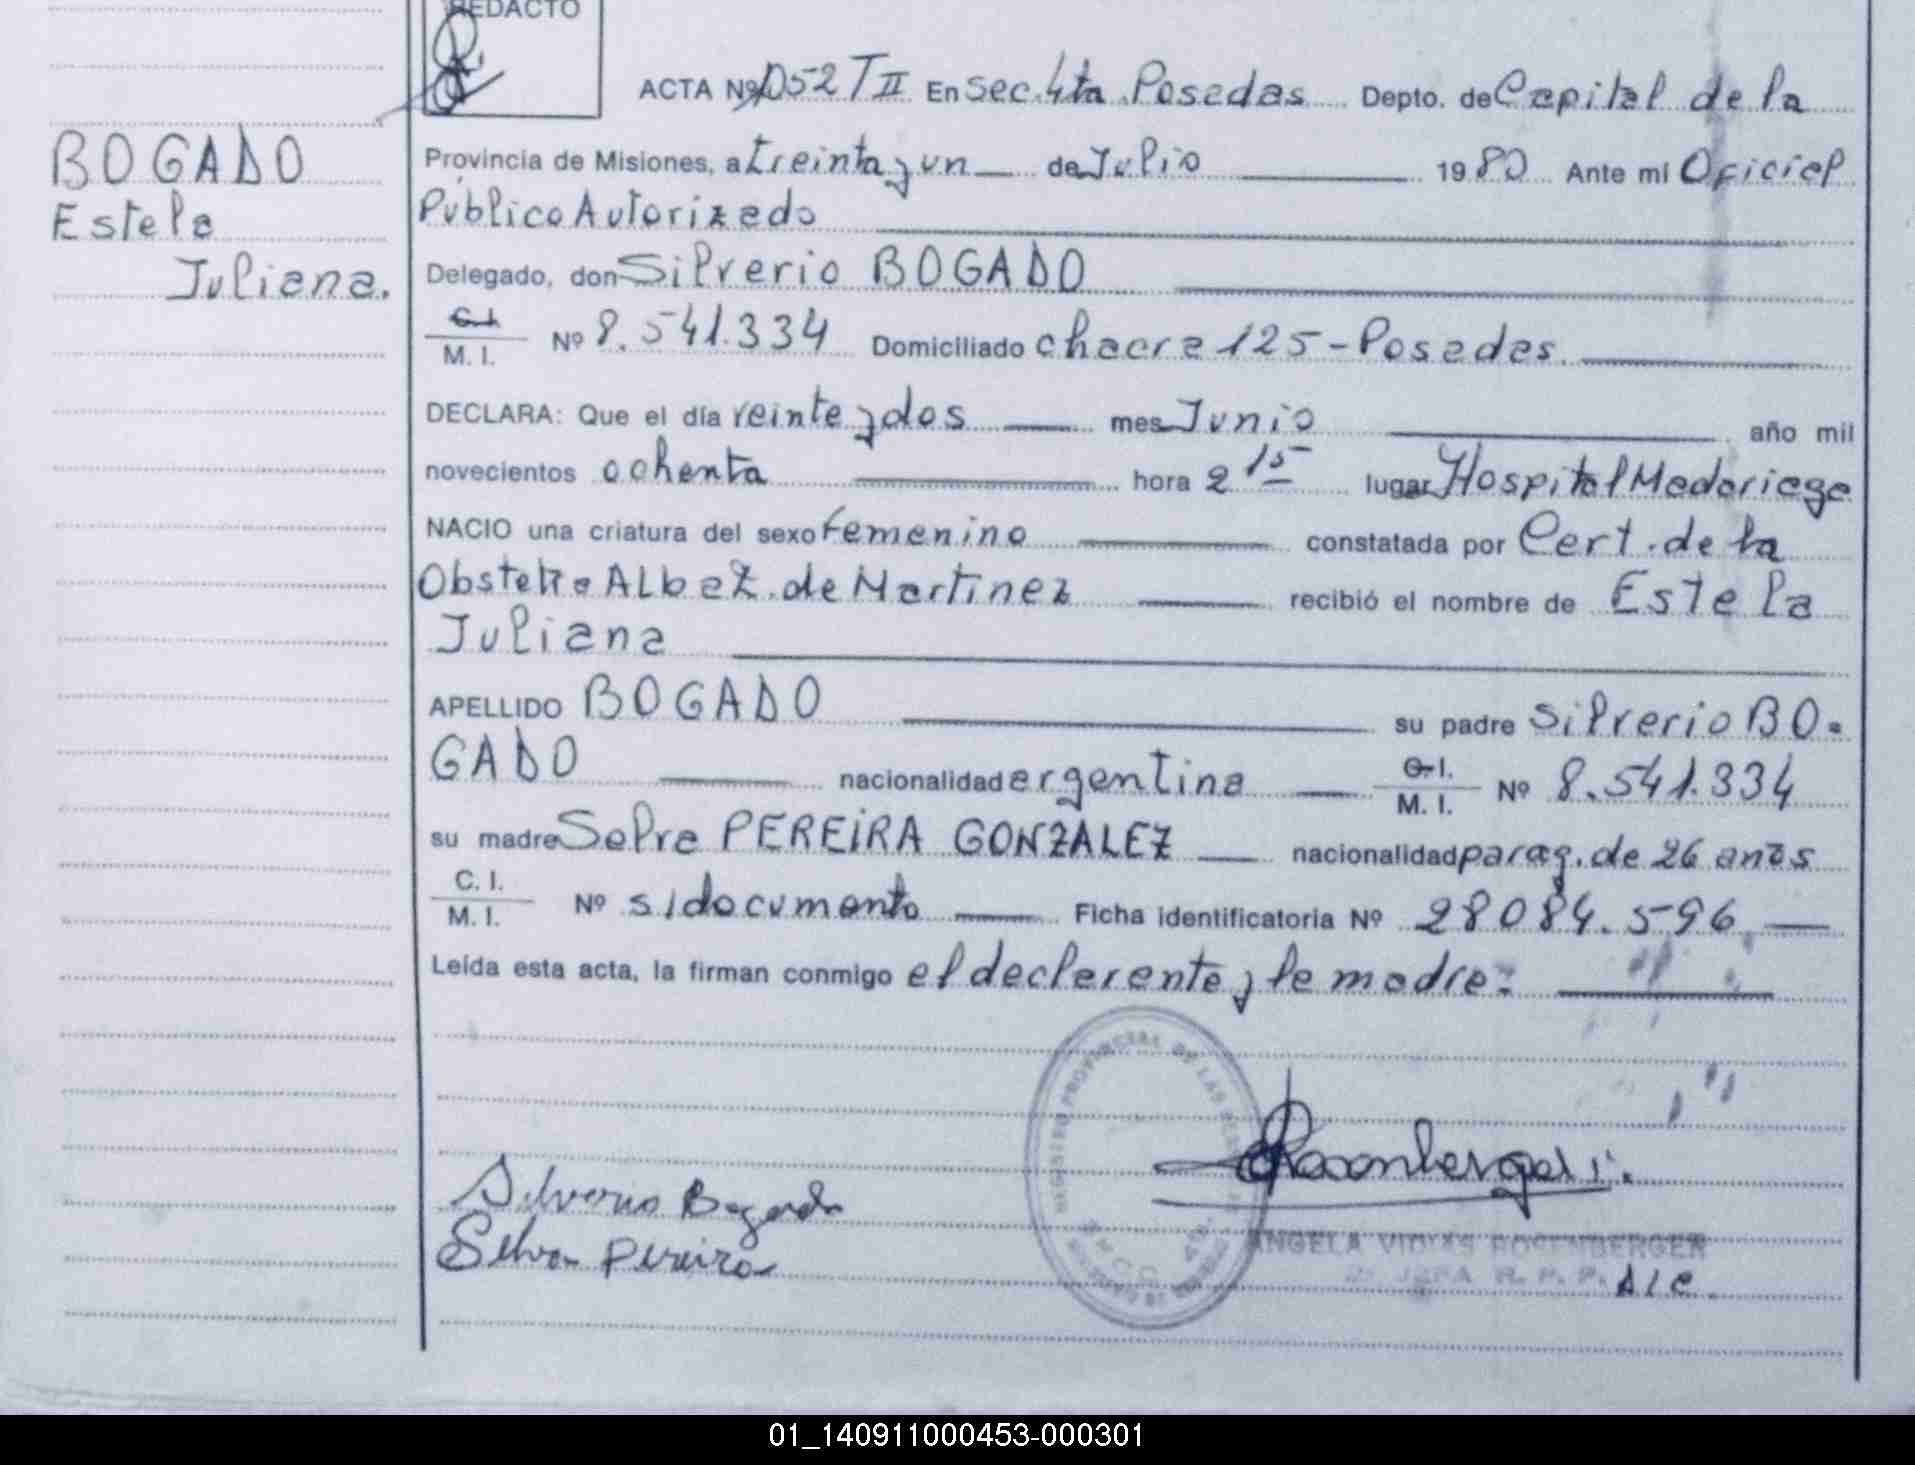 REDACTO
ACTA Nº 1052 T II En Sec. 4ta. Posadas Depto. de Capital de la
BOGADO
Provincia de Misiones, a treinta y un de Julio 1980 Ante mí Oficial
Estela
Público Autorizado
Juliana.
Delegado, don Silverio BOGADO
C. I.
M. I. Nº 8.541.334 Domiciliado chacra 125 - Posadas.
DECLARA: Que el día veinte y dos mes Junio año mil
novecientos ochenta hora 2 15 lugar Hospital Madariaga
NACIO una criatura del sexo femenino constatada por Cert. de la
Obstetra Alba Z. de Martinez recibió el nombre de Estela
Juliana
APELLIDO BOGADO su padre Silverio BO-
GADO nacionalidad argentina C. I. M. I. Nº 8.541.334
su madre Selva PEREIRA GONZALEZ nacionalidad parag. de 26 años
C. I.
M. I. Nº s/documento Ficha identificatoria Nº 28084.596
Leída esta acta, la firman conmigo el declarente y la madre:
REGISTRO PROVINCIAL DE LAS
Silverio Bogado
Selva Pereira
Rosenberger
ANGELA VIDIAS ROSENBERGER
JEFA R. P. P. A/C.
01_140911000453-000301